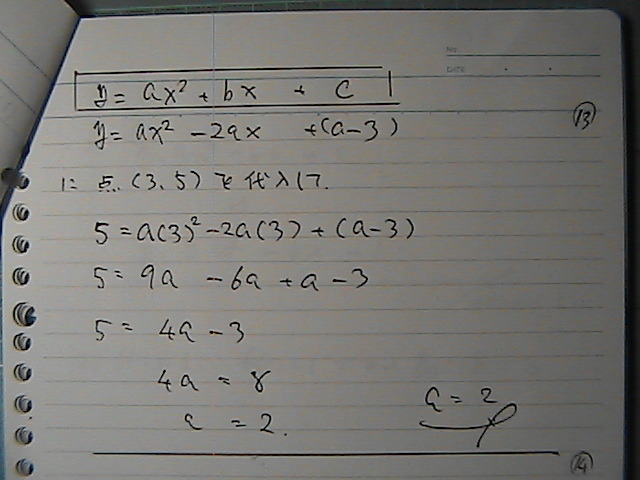 NO.
DATE
y = ax² + bx + c
⑬
y = ax² - 2ax + (a-3)
に 点 (3, 5) を代入して.
5 = a(3)² - 2a(3) + (a-3)
5 = 9a - 6a + a - 3
5 = 4a - 3
4a = 8
a = 2.
a = 2
⑭